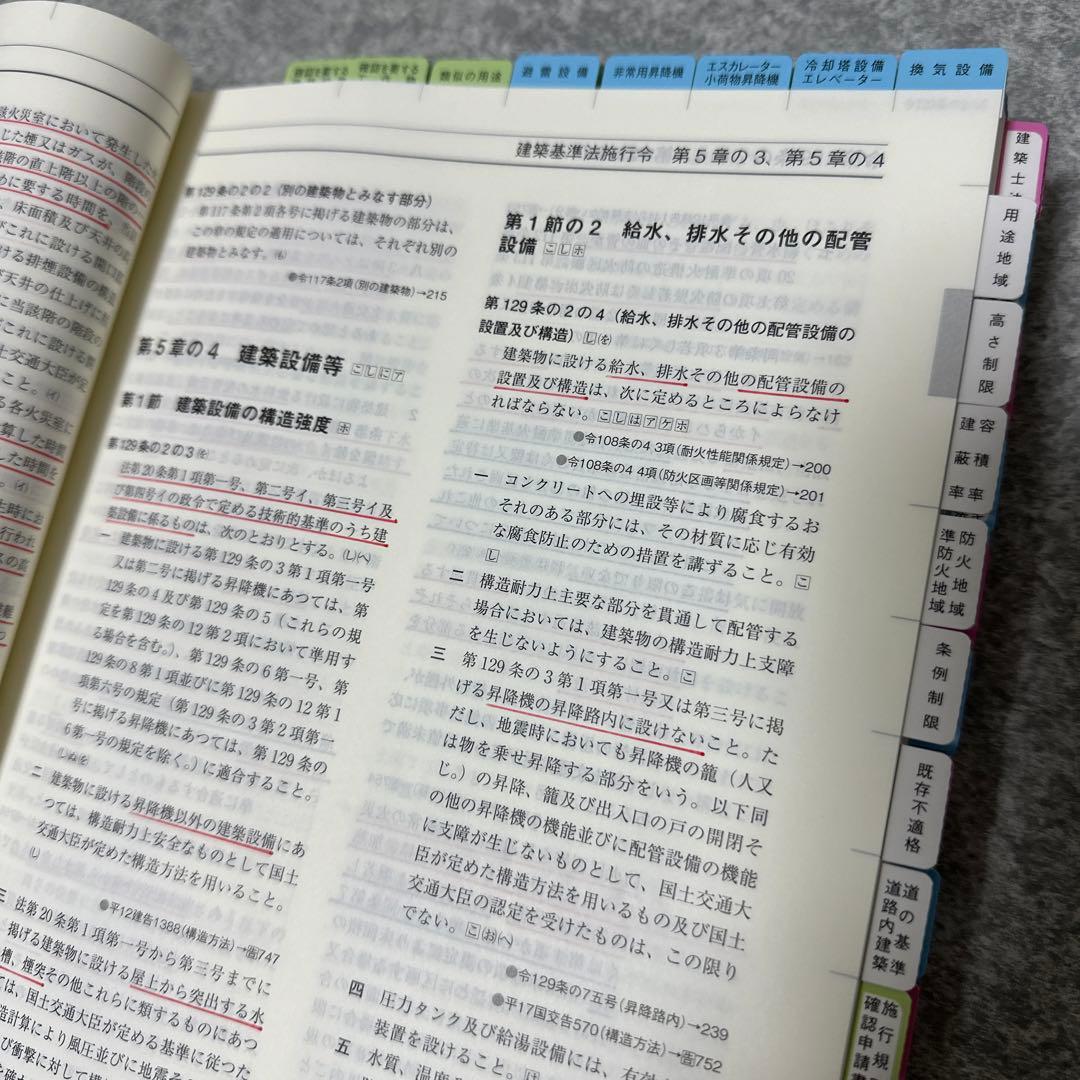 類似の用途
避雷設備
非常用昇降機
エスカレーター
小荷物昇降機
冷却塔設備
エレベーター
換気設備
建築基準法施行令 第5章の3、第5章の4
火災室において発生した
じた煙又はガスが、階段の
階の直上階以上の階の
めに要する時間を、
、床面積及び天井の
びこれに設ける開口
ける排煙設備の構造
び天井の仕上げに
に当該階の階段の
これに設ける
土交通大臣が定
こと。(イ)
る各火災室に
算した時間
した時間を
第129条の2の2（別の建築物とみなす部分）
第117条第2項各号に掲げる建築物の部分は、
この章の規定の適用については、それぞれ別の
建築物とみなす。(も)
●令117条2項(別の建築物)→215
第5章の4 建築設備等 こしにア
第1節 建築設備の構造強度 ホ
第129条の2の3(を)
法第20条第1項第一号、第二号イ、第三号イ及
び第四号イの政令で定める技術的基準のうち建
築設備に係るものは、次のとおりとする。(し)(へ)
一 建築物に設ける第129条の3第1項第一号
又は第二号に掲げる昇降機にあつては、第
129条の4及び第129条の5（これらの規
定を第129条の12第2項において準用す
る場合を含む。）、第129条の6第一号、第
129条の8第1項並びに第129条の12第1
項第六号の規定（第129条の3第2項第一
号に掲げる昇降機にあつては、第129条の
6第一号の規定を除く。）に適合すること。
(し)(ぬ)(を)
二 建築物に設ける昇降機以外の建築設備にあ
つては、構造耐力上安全なものとして国土
交通大臣が定めた構造方法を用いること。
(し)
●平12建告1388(構造方法)→告747
三 法第20条第1項第一号から第三号までに
掲げる建築物に設ける屋上から突出する水
槽、煙突その他これらに類するものにあつ
ては、国土交通大臣が定める基準に従つた
造計算により風圧並びに地震そ
び衝撃に対して構
第1節の2 給水、排水その他の配管
設備 こしホ
第129条の2の4（給水、排水その他の配管設備の
設置及び構造）(し)(を)
建築物に設ける給水、排水その他の配管設備の
設置及び構造は、次に定めるところによらなけ
ればならない。こしはアケホ
●令108条の4 3項(耐火性能関係規定)→200
●令108条の4 4項(防火区画等関係規定)→201
一 コンクリートへの埋設等により腐食するお
それのある部分には、その材質に応じ有効
な腐食防止のための措置を講ずること。こ
し
二 構造耐力上主要な部分を貫通して配管する
場合においては、建築物の構造耐力上支障
を生じないようにすること。こ
三 第129条の3第1項第一号又は第三号に掲
げる昇降機の昇降路内に設けないこと。た
だし、地震時においても昇降機の籠（人又
は物を乗せ昇降する部分をいう。以下同
じ。）の昇降、籠及び出入口の戸の開閉そ
の他の昇降機の機能並びに配管設備の機能
に支障が生じないものとして、国土交通大
臣が定めた構造方法を用いるもの及び国土
交通大臣の認定を受けたものは、この限り
でない。こ(お)(へ)
●令129条の7五号(昇降路内)→239
●平17国交告570(構造方法)→告752
四 圧力タンク及び給湯設備には、有効
装置を設けること。
五 水質、温度
建築士法
用途地域
高さ制限
容積率
建蔽率
防火地域
準防火地域
条例制限
既存不適格
道の基準
道路内建築
施行規
確認申請書